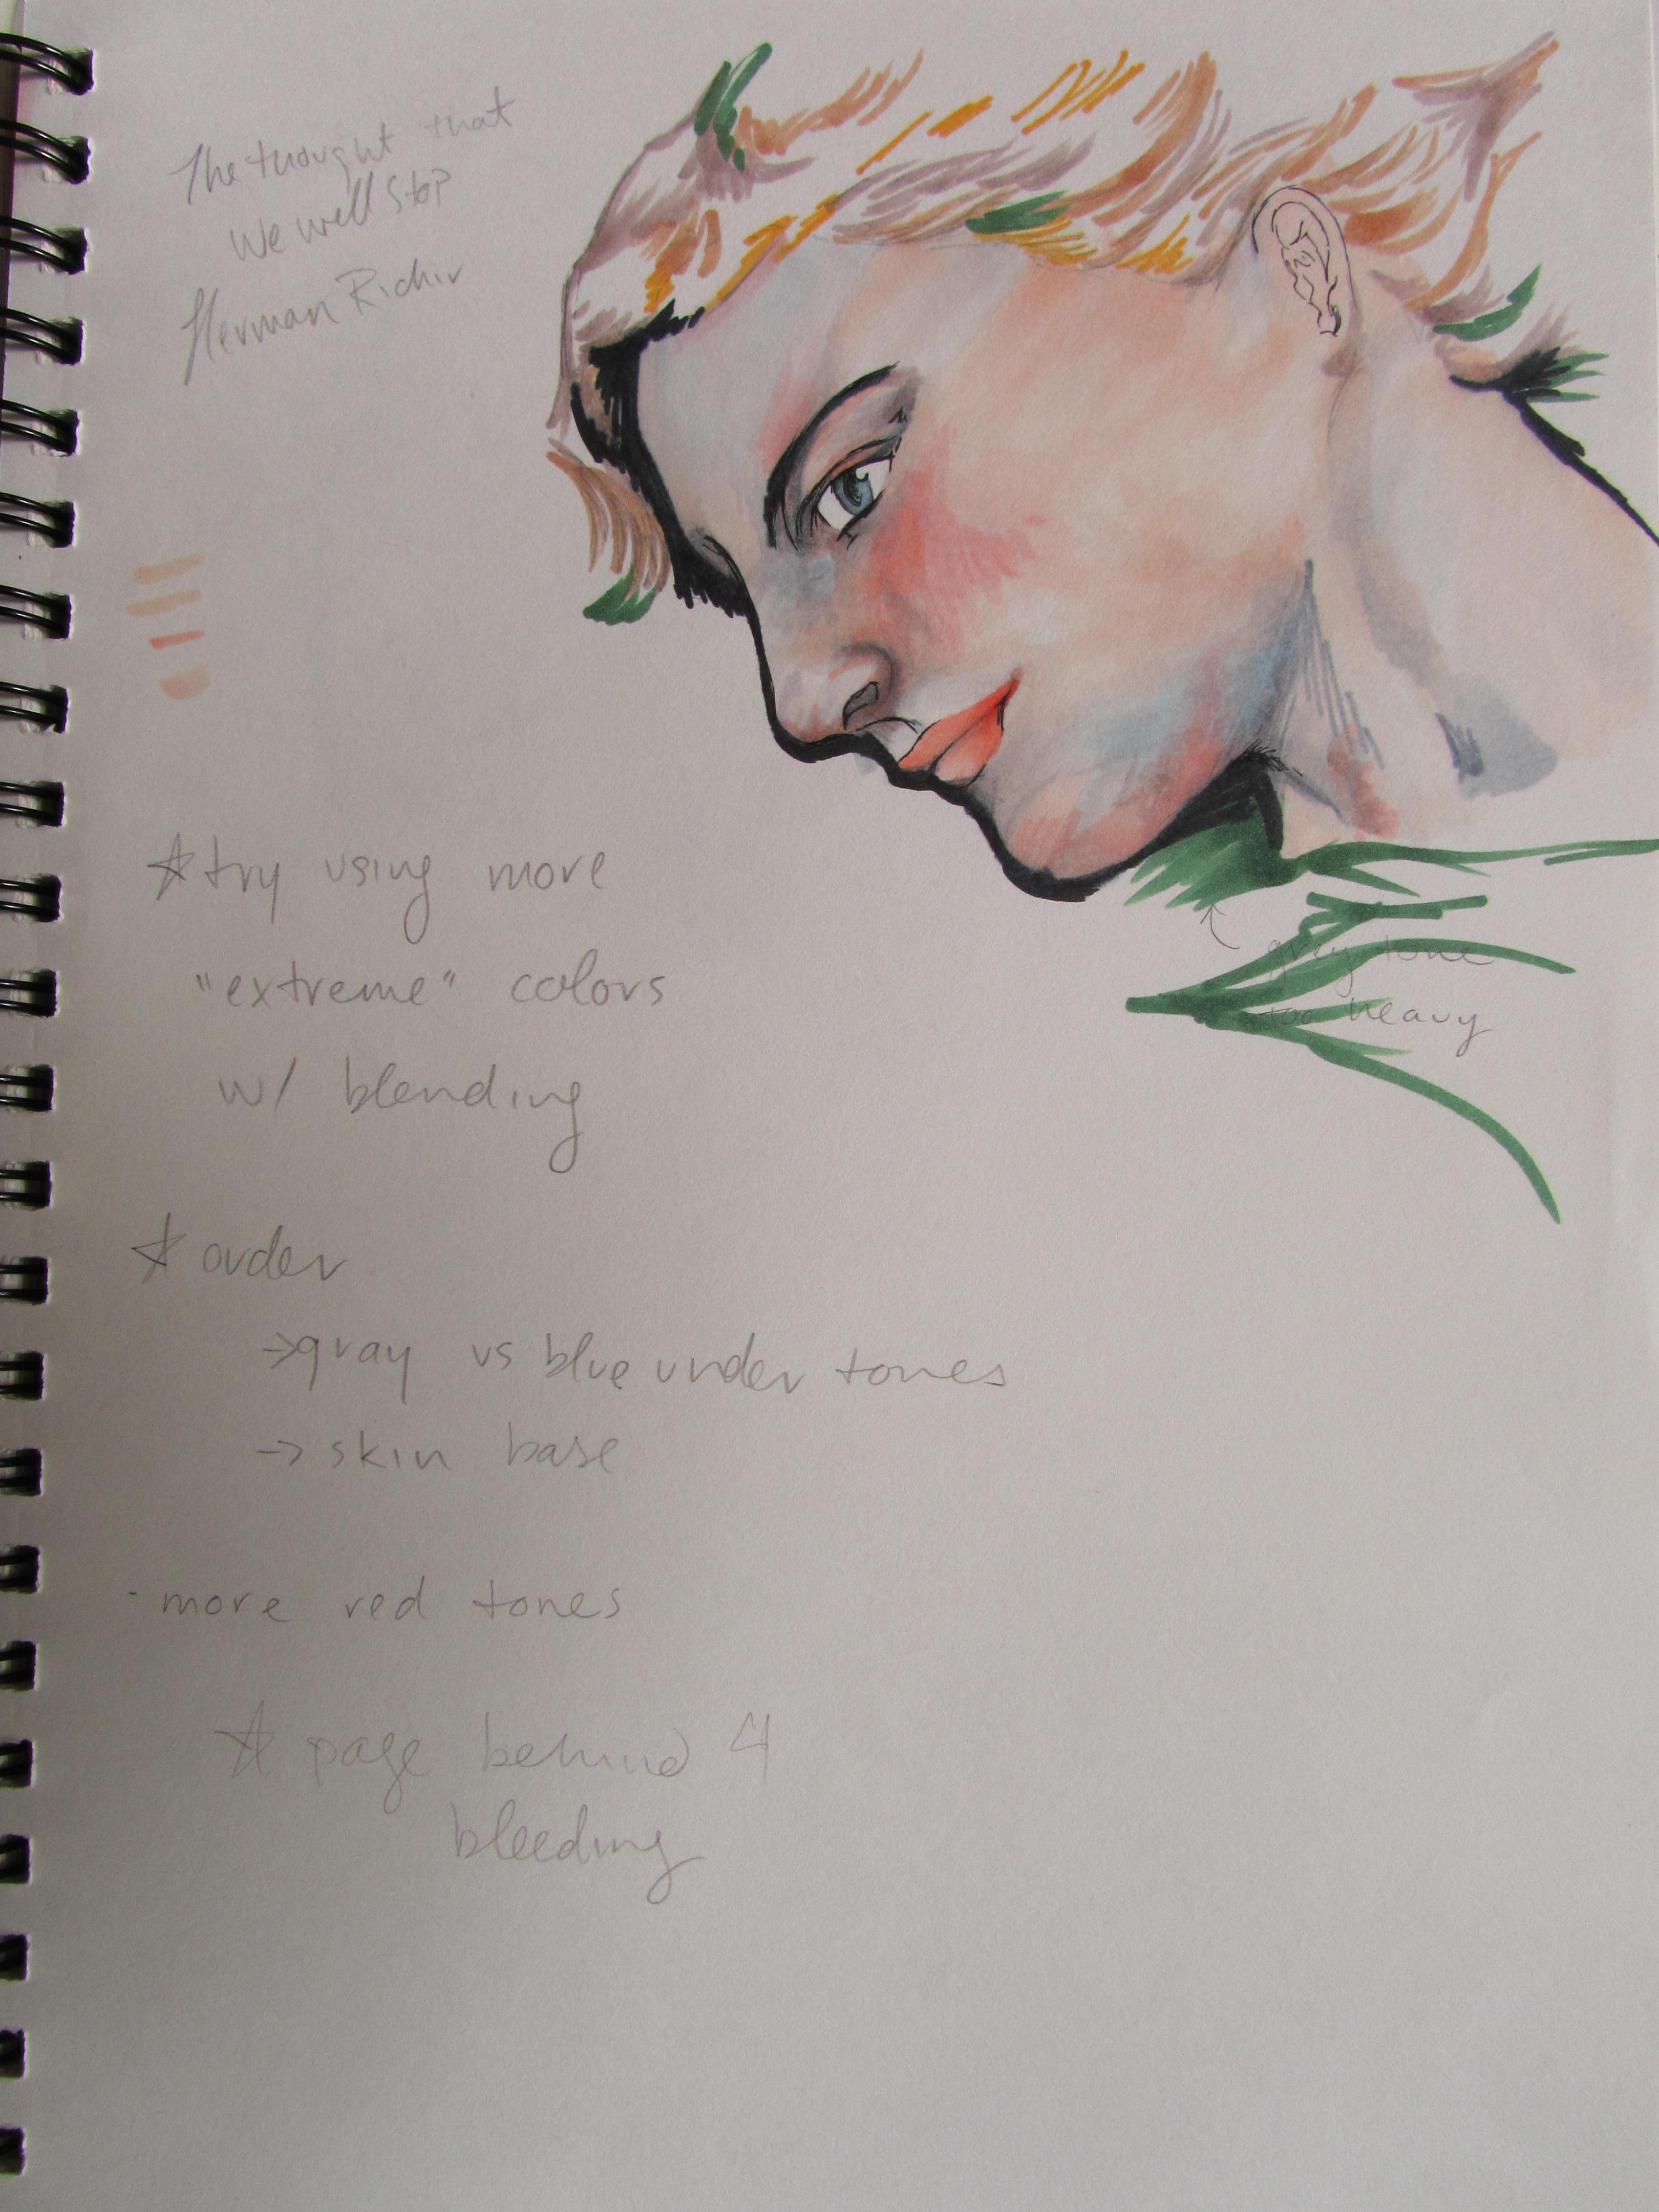 The thought that
We well stop
Herman Richir
☆ try using more
"extreme" colors
w/ blending
grey tone
too heavy
☆ order
→ gray vs blue under tones
→ skin base
- more red tones
☆ page behind 4
bleeding